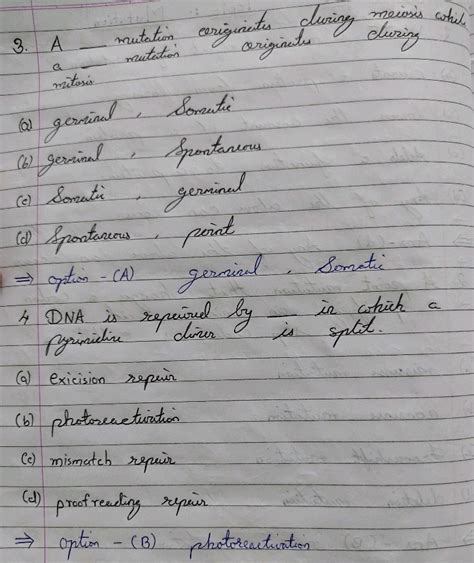 3. A __ mutation originates during meiosis while
a __ mutation originates during
mitosis
(a) germinal, Somatic
(b) germinal, Spontaneous
(c) Somatic, germinal
(d) Spontaneous, point
⇒ option - (A) germinal, Somatic
4 DNA is repaired by __ in which a
pyrimidine dimer is split.
(a) exicision repair
(b) photoreactivation
(c) mismatch repair
(d) proofreading repair
⇒ option - (B) photoreactivation